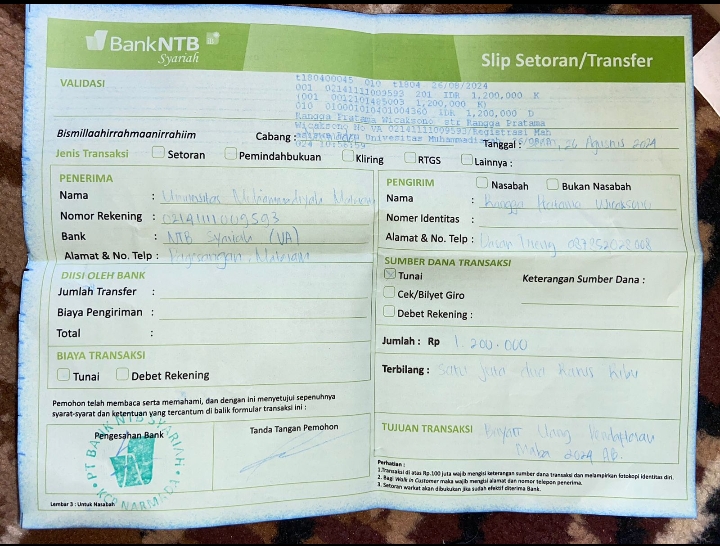 BankNTB
Syariah
Slip Setoran/Transfer
VALIDASI
t180400045 010 t1804 26/08/2024
001 02141111009593 201 IDR 1,200,000 K
(001 0012101485003 1,200,000 K)
010 010001010401004360 IDR 1,200,000 D
Rangga Pratama Wicaksono str Rangga Pratama
Wicaksono No VA 02141111009593/Registrasi Mah
Baru Universitas Muhammadi
024 10:56:59
Bismillaahirrahmaanirrahiim
Cabang :
Tanggal : 26 Agustus 2024
Jenis Transaksi Setoran Pemindahbukuan Kliring RTGS Lainnya :
PENERIMA
Nama : Universitas Muhammadiyah Mataram
Nomor Rekening : 02141111009593
Bank : NTB Syariah (VA)
Alamat & No. Telp : Pagesangan, Mataram
DIISI OLEH BANK
Jumlah Transfer :
Biaya Pengiriman :
Total :
BIAYA TRANSAKSI
Tunai Debet Rekening
Pemohon telah membaca serta memahami, dan dengan ini menyetujui sepenuhnya
syarat-syarat dan ketentuan yang tercantum di balik formular transaksi ini :
Pengesahan Bank
Tanda Tangan Pemohon
PT BANK NTB SYARIAH
KCP NARMADA
Lembar 3 : Untuk Nasabah
PENGIRIM Nasabah Bukan Nasabah
Nama : Rangga Pratama Wicaksono
Nomer Identitas :
Alamat & No. Telp :
SUMBER DANA TRANSAKSI
Tunai Keterangan Sumber Dana :
Cek/Bilyet Giro
Debet Rekening :
Jumlah : Rp 1.200.000
Terbilang : Satu juta dua ratus ribu
TUJUAN TRANSAKSI Bayar Uang Pendaftaran
Maba 2024
Perhatian :
1.Transaksi di atas Rp.100 juta wajib mengisi keterangan sumber dana transaksi dan melampirkan fotokopi identitas diri.
2. Bagi Walk in Customer maka wajib mengisi alamat dan nomor telepon penerima.
3. Setoran warkat akan dibukukan jika sudah efektif diterima Bank.